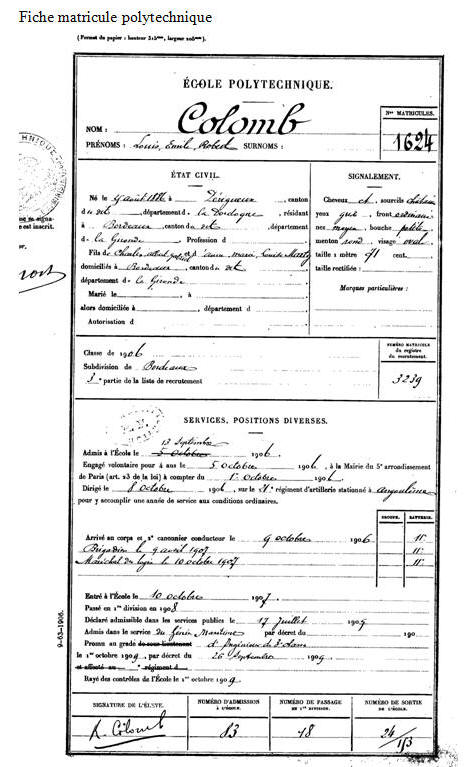 Fiche matricule polytechnique
(Format du papier : hauteur 315mm, largeur 206mm).
ÉCOLE POLYTECHNIQUE.
NOM : Colomb
Nos MATRICULES.
1624
PRÉNOMS : Louis, Emile, Robert SURNOMS :
ÉTAT CIVIL.
Né le 9 août 1886 à Périgueux, canton
du dit, département de la Dordogne, résidant
à Bordeaux, canton du dit, département
de la Gironde, Profession d
Fils de Charles
domiciliés à Bordeaux, canton du dit,
département de la Gironde
Marié le à
alors domiciliée à , département d
Autorisation d
SIGNALEMENT.
Cheveux sourcils
yeux gris, front ordinaire
nez moyen, bouche petite
menton rond, visage oval
taille : 1 mètre 71 cent.
taille rectifiée :
Marques particulières :
Classe de 1906
Subdivision de Bordeaux
3e partie de la liste de recrutement
NUMÉRO MATRICULE
du registre
du recrutement.
3239
SERVICES, POSITIONS DIVERSES.
13 Septembre
Admis à l'École le 5 octobre 1906
Engagé volontaire pour 4 ans le 5 octobre 1906, à la Mairie du 5e arrondissement
de Paris (art. 23 de la loi) à compter du 1er octobre 1906
Dirigé le 8 octobre 1906, sur le régiment d'artillerie stationné à angoulême
pour y accomplir une année de service aux conditions ordinaires.
BATTERIE.
Arrivé au corps et 2e canonnier conducteur le 9 octobre 1906
Brigadier le 9 avril 1907
Maréchal des logis le 10 octobre 1907
Entré à l'École le 10 octobre 1907
Passé en 1re division en 1908
Déclaré admissible dans les services publics le 17 juillet 1909
Admis dans le service du Génie Maritime par décret du 190
Promu au grade de sous-lieutenant d'Ingénieur de 3e classe
le 1er octobre 1909, par décret du 26 Septembre 1909
et affecté au régiment d
Rayé des contrôles de l'École le 1er octobre 1909
9-63-1906.
SIGNATURE DE L'ÉLÈVE.
R. Colomb
NUMÉRO D'ADMISSION
à L'ÉCOLE.
83
NUMÉRO DE PASSAGE
EN 1re DIVISION.
18
NUMÉRO DE SORTIE
de L'ÉCOLE.
24/153